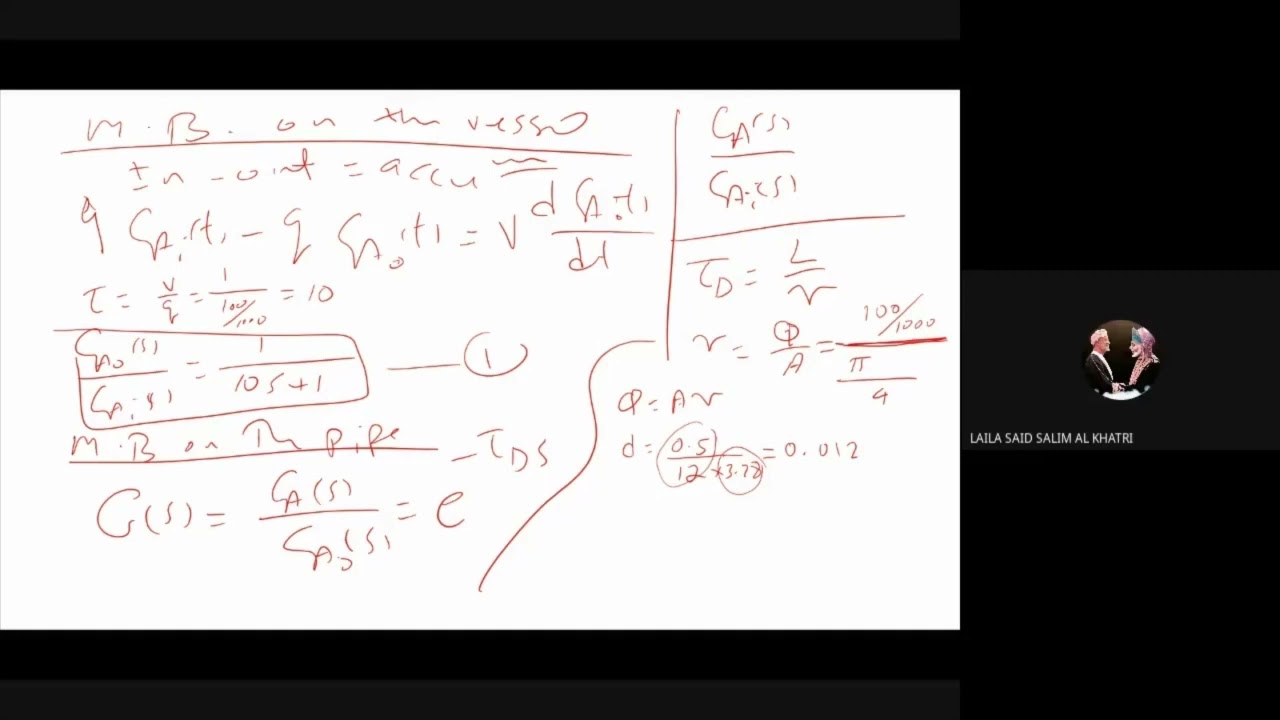 M.B. on the vessel
in - out = accu
q C_Ai(t) - q C_Ao(t) = V d C_Ao(t) / dt
τ = V/q = 1 / (100/1000) = 10
C_Ao(s) / C_Ai(s) = 1 / (10s+1) — (1)
M.B on The pipe
G(s) = C_A(s) / C_Ao(s) = e^(-τ_D s)
C_A(s) / C_Ai(s)
τ_D = L / v
v = Q/A = (100/1000) / (π/4)
Q = A v
d = 0.5 / (12 × 3.28) = 0.012
LAILA SAID SALIM AL KHATRI